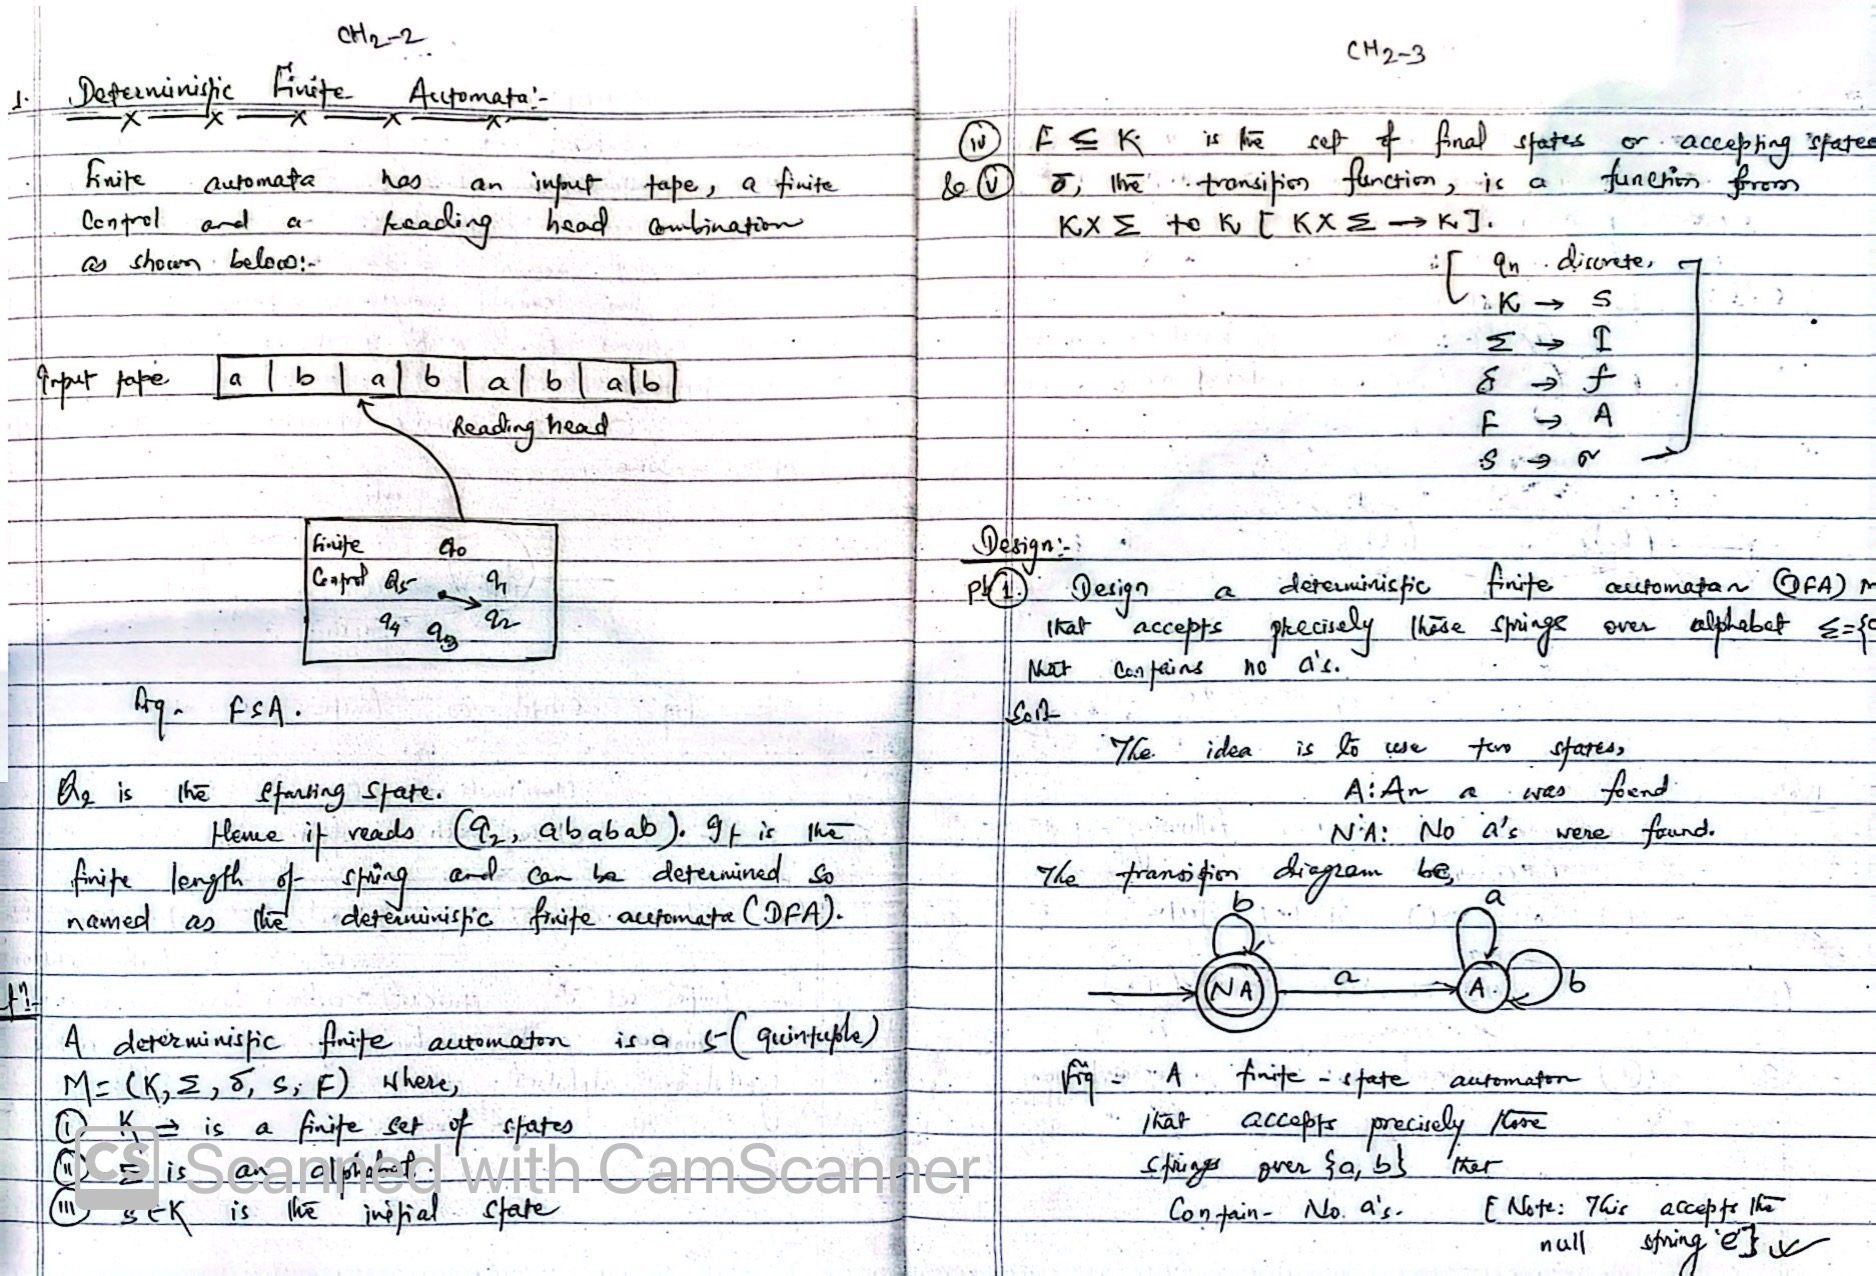 CH2-2
1. Deterministic Finite Automata:-
Finite automata has an input tape, a finite
Control and a Reading head combination
as shown below:-
Input tape a b a b a b a b
Reading head
Finite
Control
q0
q5 q1
q4 q3 q2
Fig- FSA.
q2 is the starting state.
Hence it reads (q2, ababab). It is the
finite length of string and can be determined so
named as the deterministic finite automata (DFA).
A deterministic finite automaton is a 5-(quintuple)
M = (K, Σ, δ, s, F) where,
(i) K ⇒ is a finite set of states
(ii) Σ is an alphabet.
(iii) s ∈ K is the initial state
CS Scanned with CamScanner
CH2-3
(iv) F ⊆ K is the set of final states or accepting states
& (v) δ, the transition function, is a function from
K X Σ to K [ K X Σ → K ].
[ qn discrete,
K → S
Σ → I
δ → f
F → A
S → σ ]
Design:-
(1). Design a deterministic finite automatan (DFA) M
that accepts precisely those strings over alphabet Σ={
that contains no a's.
Sol:-
The idea is to use two states,
A: An a was found
NA: No a's were found.
The transition diagram be,
b a
NA a A b
Fig - A finite-state automaton
that accepts precisely those
strings over {a, b} that
Contain- No. a's. [Note: This accepts the
null string 'e']